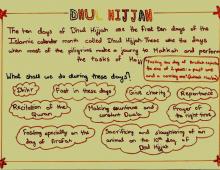 DHUL HIJJAH
The ten days of Dhul Hijjah are the first ten days of the
Islamic calendar month called Dhul Hijjah. These are the days
when most of the pilgrims make a journey to Makkah and perform
the tasks of Hajj.
"Fasting the day of Arafah
a past year
and a coming year"
What shall we do during these days?
Dhikr
Fast in these days
Give charity
Repentance
Recitation of the
Quran
Making countless and
constant Duals
Prayer of
the night time
Fasting specially on the
day of Arafah
Sacrificing and slaughtering of an
animal on the 10th day of
Dhul Hijjah